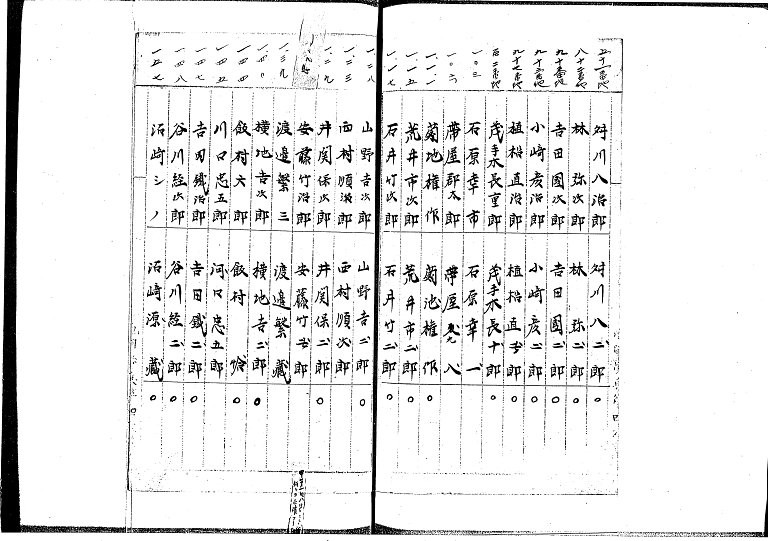 五十一番地 舛川八治郎 舛川八二郎 〇
八十三番地 林弥次郎 林弥二郎 〇
九十番地 吉田國次郎 吉田國二郎 〇
小崎彦治郎 小崎彦二郎 〇
九十七番地 植松直治郎 植松直次郎 〇
百二番地 茂手木長重郎 茂手木長十郎 〇
一〇三 石原幸市 石原幸一 〇
一〇六 帯屋 帯屋 〇
一一一 菊地権作 菊池権作 〇
一一五 荒井市次郎 荒井市二郎 〇
一一七 石井竹次郎 石井竹二郎 〇
一二八 山野吉次郎 山野吉二郎 〇
一二三 西村順治郎 西村順次郎
一二九 井関保次郎 井関保二郎 〇
安藤竹治郎 安藤竹次郎
一三九 渡邉繁三 渡邉繁蔵
一四〇 横地吉次郎 横地吉二郎 〇
一四四 飯村六郎 飯村 〇
一四五 川口忠五郎 河口忠五郎 〇
一四七 吉田鐵治郎 吉田鐵二郎 〇
一四八 谷川経次郎 谷川経二郎 〇
一五七 沼崎シノ 沼崎源蔵 〇